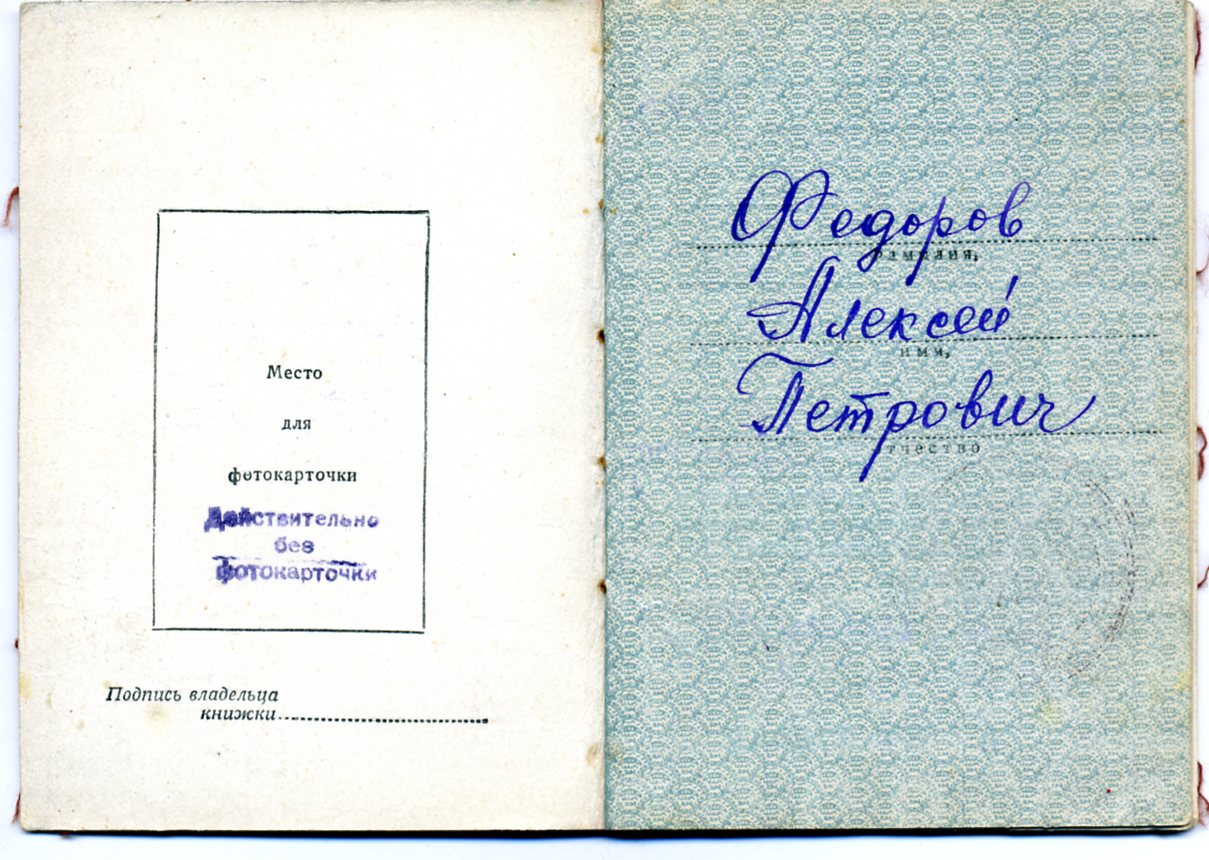 Место
для
фотокарточки
Действительно
без
фотокарточки
Подпись владельца
книжки
Федоров
фамилия,
Алексей
имя,
Петрович
отчество